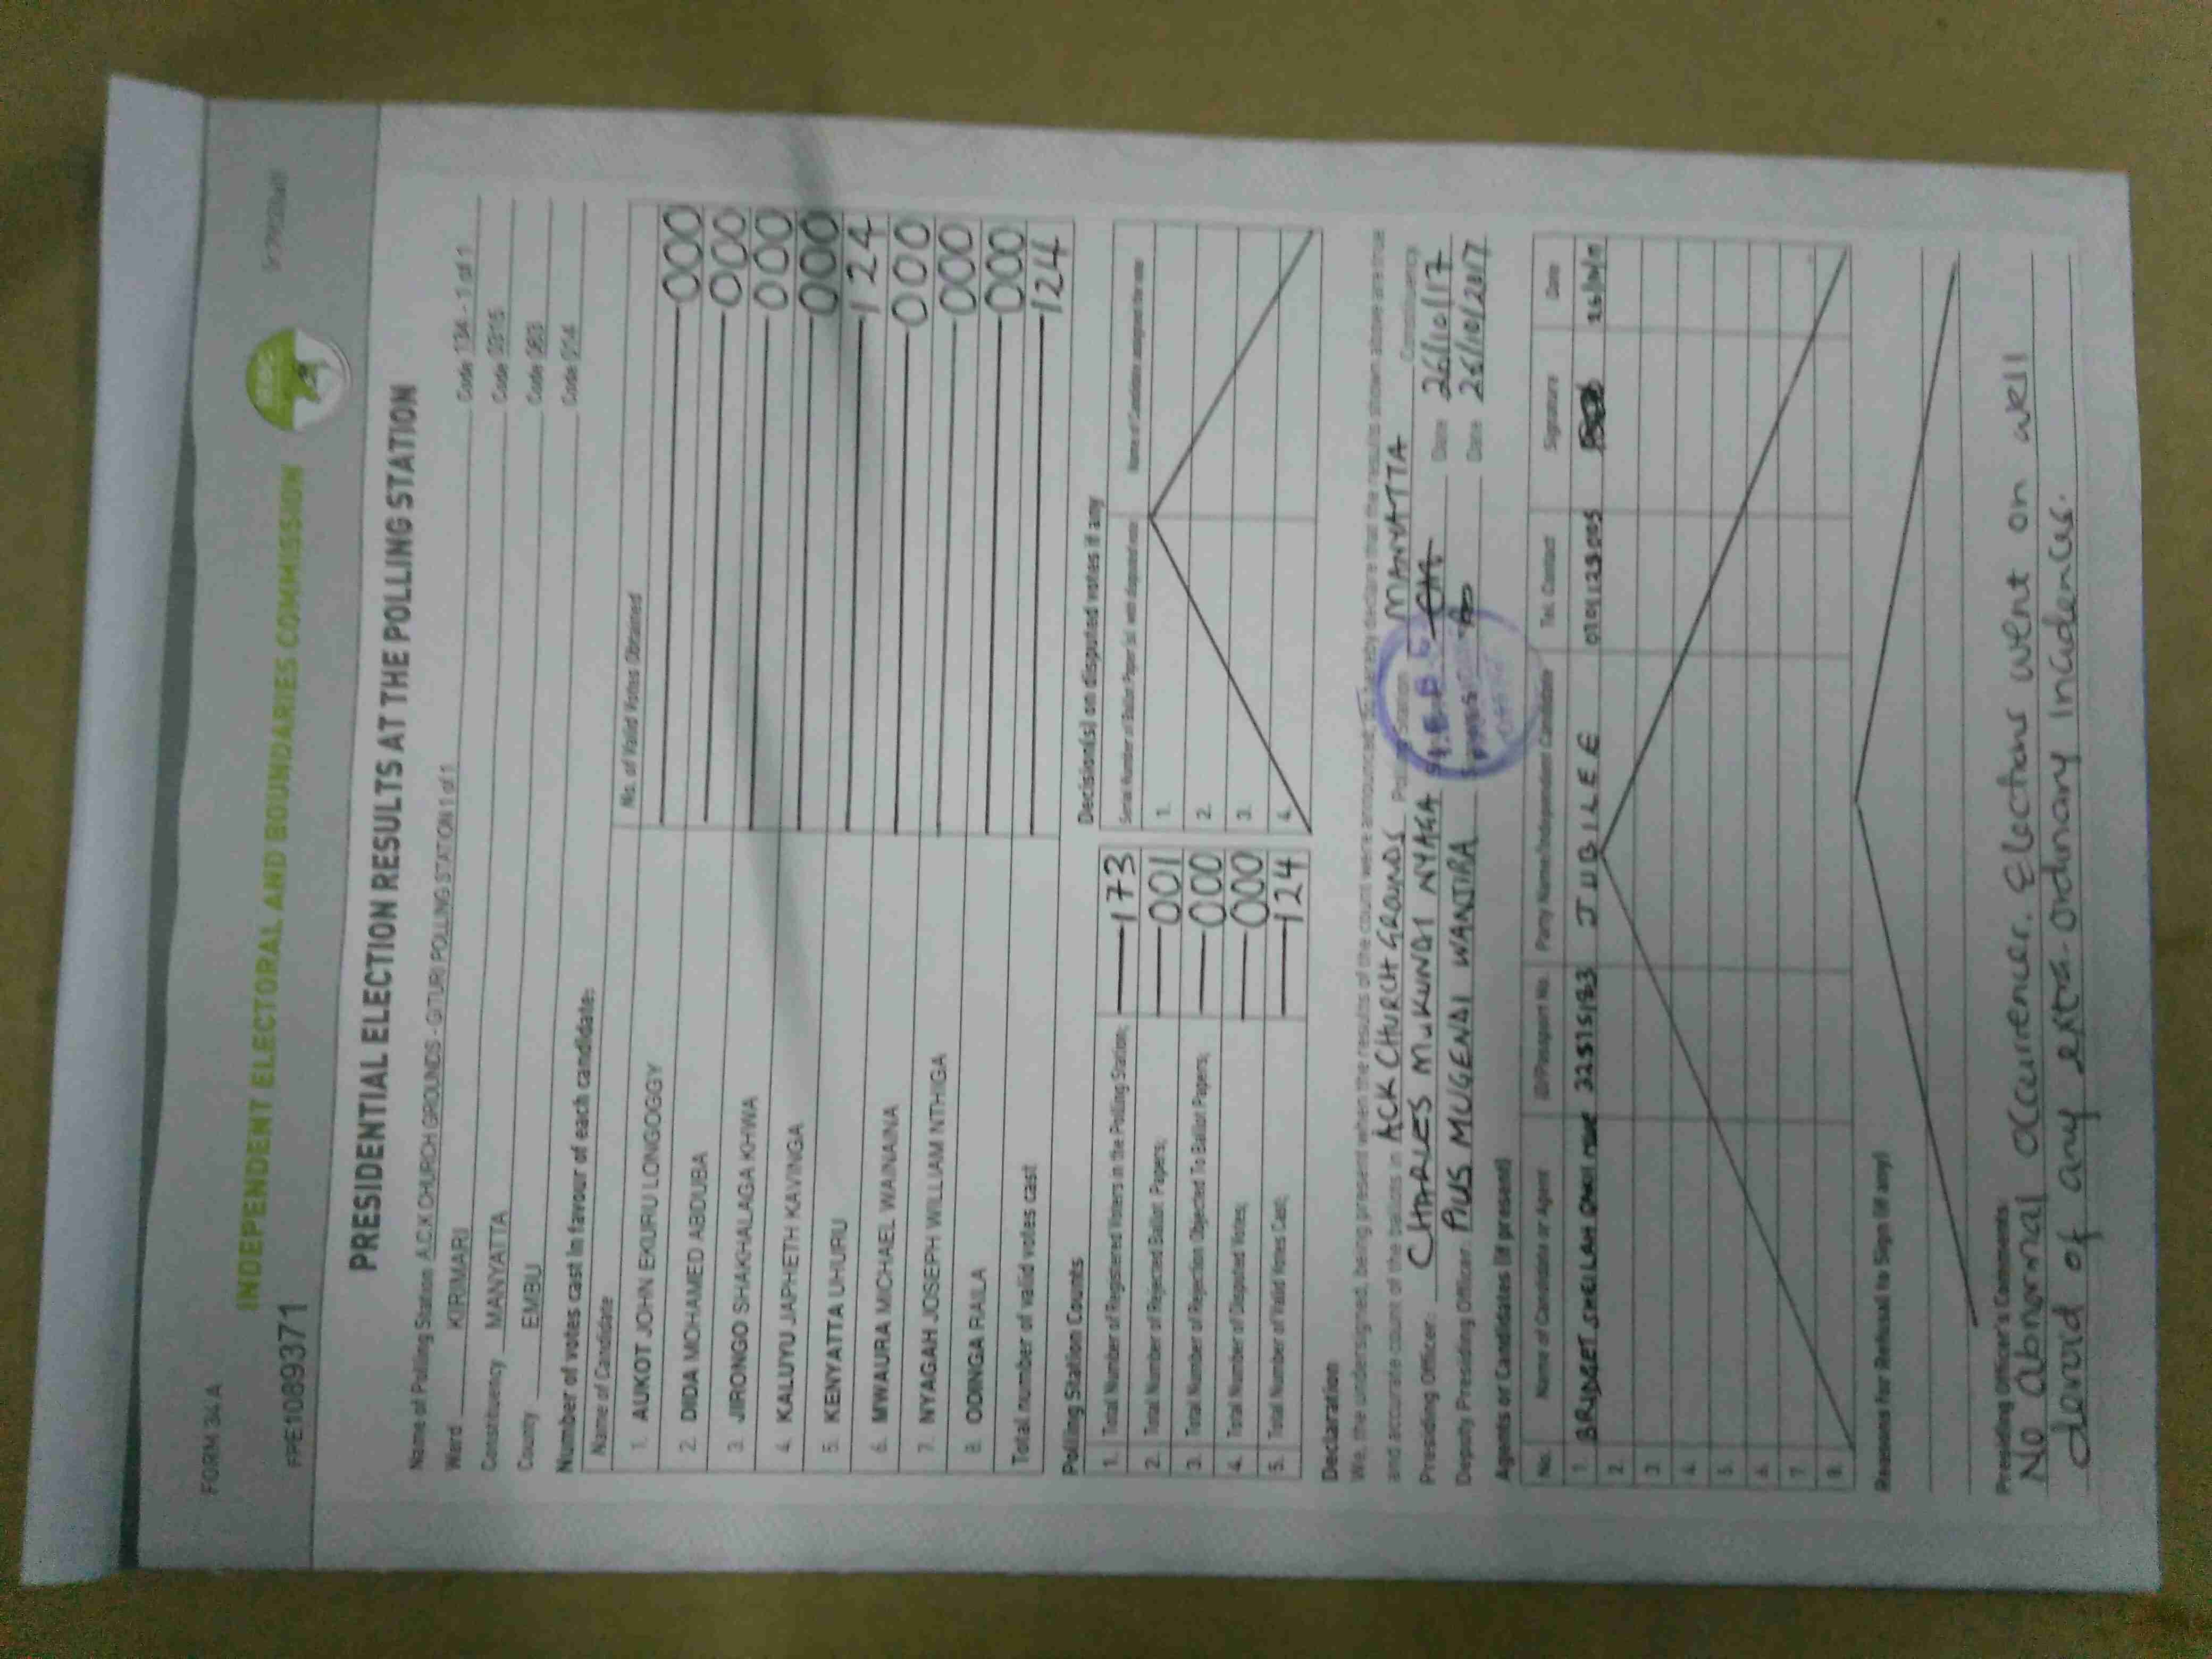 FORM 34A
INDEPENDENT ELECTORAL AND BOUNDARIES COMMISSION
FPE1089371
PRESIDENTIAL ELECTION RESULTS AT THE POLLING STATION
Name of Polling Station A.C.K CHURCH GROUNDS - GITURI POLLING STATION 1 of 1 Code 134 - 1 of 1
Ward KIRIMARI Code 0315
Constituency MANYATTA Code 063
County EMBU Code 014
Number of votes cast in favour of each candidate:
Name of Candidate No. of Valid Votes Obtained
1. AUKOT JOHN EKURU LONGOGGY 000
2. DIDA MOHAMED ABDUBA 000
3. JIRONGO SHAKHALAGA KHWA 000
4. KALUYU JAPHETH KAVINGA 000
5. KENYATTA UHURU 124
6. MWAURA MICHAEL WAINAINA 000
7. NYAGAH JOSEPH WILLIAM NTHIGA 000
8. ODINGA RAILA 000
Total number of valid votes cast 124
Polling Station Counts
1. Total Number of Registered Voters in the Polling Station; 173
2. Total Number of Rejected Ballot Papers; 001
3. Total Number of Rejection Objected To Ballot Papers; 000
4. Total Number of Disputed Votes; 000
5. Total Number of Valid Votes Cast; 124
Decision(s) on disputed votes if any
Serial Number of Ballot Paper (s) with disputed vote Name of Candidate assigned the vote
1.
2.
3.
4.
Declaration
We, the undersigned, being present when the results of the count were announced, do hereby declare that the results shown above are true
and accurate count of the ballots in ACK CHURCH GROUNDS Polling Station MANYATTA Constituency
Presiding Officer: CHARLES MUKUNDI NYAGA Date 26/10/17
Deputy Presiding Officer: PIUS MUGENDI WANJIRA Date 26/10/2017
Agents or Candidates (if present)
No. Name of Candidate or Agent ID/Passport No. Party Name/Independent Candidate Tel. Contact Signature Date
1. BRIDGET SHEILAH JUBILEE
2.
3.
4.
5.
6.
7.
8.
Reasons For Refusal to Sign (if any)
Presiding Officer's Comments
No abnormal occurrence. Elections went on well
devoid of any extra-ordinary incidences.